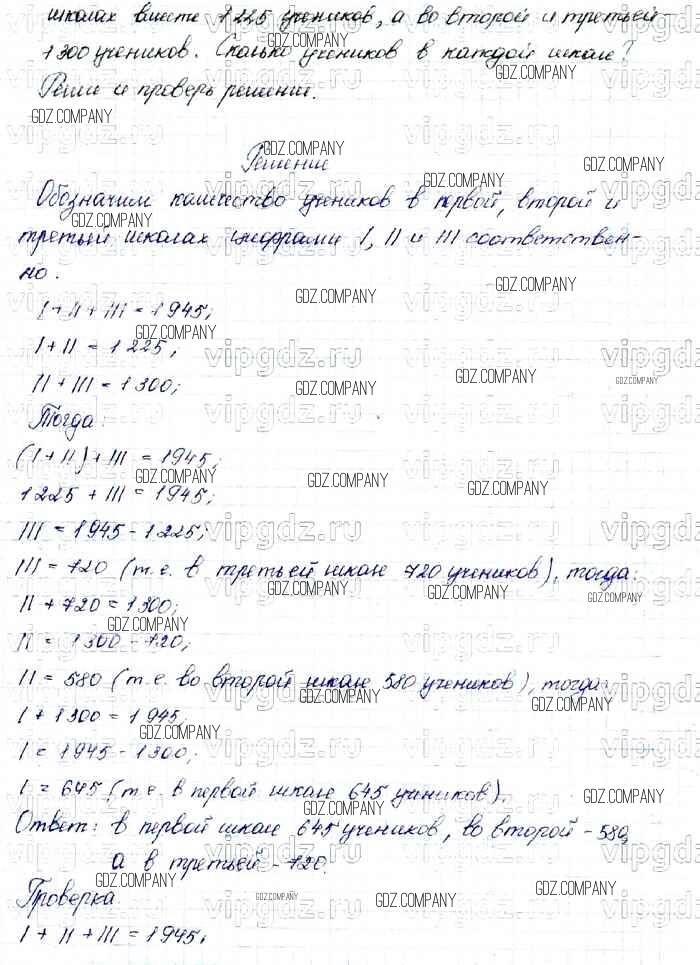 школах вместе 1225 учеников, а во второй и третьей -
1300 учеников. Сколько учеников в каждой школе?
Реши и проверь решение.
Решение
Обозначим количество учеников в первой, второй и
третьей школах цифрами I, II и III соответствен-
но.
I + II + III = 1945;
I + II = 1225;
II + III = 1300;
Тогда:
(I + II) + III = 1945;
1225 + III = 1945;
III = 1945 - 1225;
III = 720 (т.е. в третьей школе 720 учеников), тогда:
II + 720 = 1300;
II = 1300 - 720;
II = 580 (т.е. во второй школе 580 учеников), тогда:
I + 1300 = 1945;
I = 1945 - 1300;
I = 645 (т.е. в первой школе 645 учеников).
Ответ: в первой школе 645 учеников, во второй - 580,
а в третьей - 720.
Проверка
I + II + III = 1945;
GDZ.COMPANY
vipgdz.ru